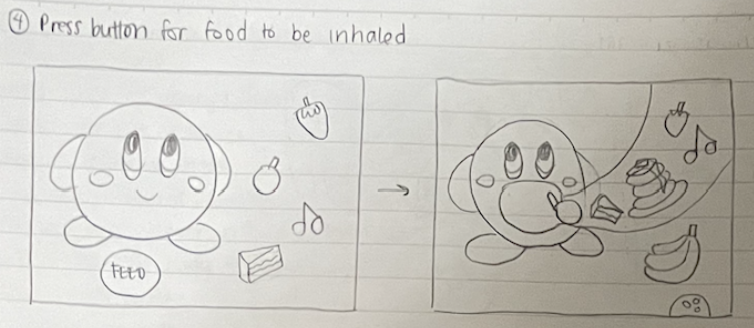 ④ Press button for food to be inhaled
FEED